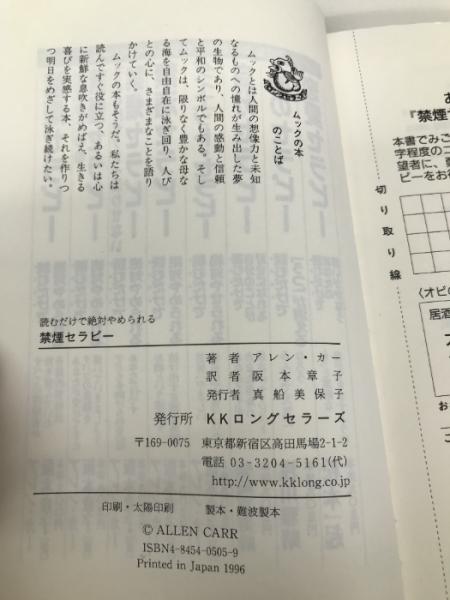 ムックの本
のことば
ムックとは人間の想像力と未知
なるものへの憧れが生み出した夢
の生物であり、人間の感動と信頼
と平和のシンボルでもある。そし
てムックは、限りなく豊かな母な
る海を自由自在に泳ぎ回り、人び
との心に、さまざまなことを語り
かけていく。
ムックの本もそうだ。私たちは
読んですぐ役に立つ、あるいは心
に新鮮な息吹きがめばえ、生きる
喜びを実感する本、それを作りつ
つ明日をめざして泳ぎ続けたい。
読むだけで絶対やめられる
禁煙セラピー
著者 アレン・カー
訳者 阪本章子
発行者 真船美保子
発行所 KKロングセラーズ
〒169-0075 東京都新宿区高田馬場2-1-2
電話 03-3204-5161(代)
http://www.kklong.co.jp
印刷・太陽印刷 製本・難波製本
© ALLEN CARR
ISBN4-8454-0505-9
Printed in Japan 1996
『禁煙セ
本書でみご
字程度のコ
望者に、
ピーをお
切り取り線
〈オビの
居酒
お